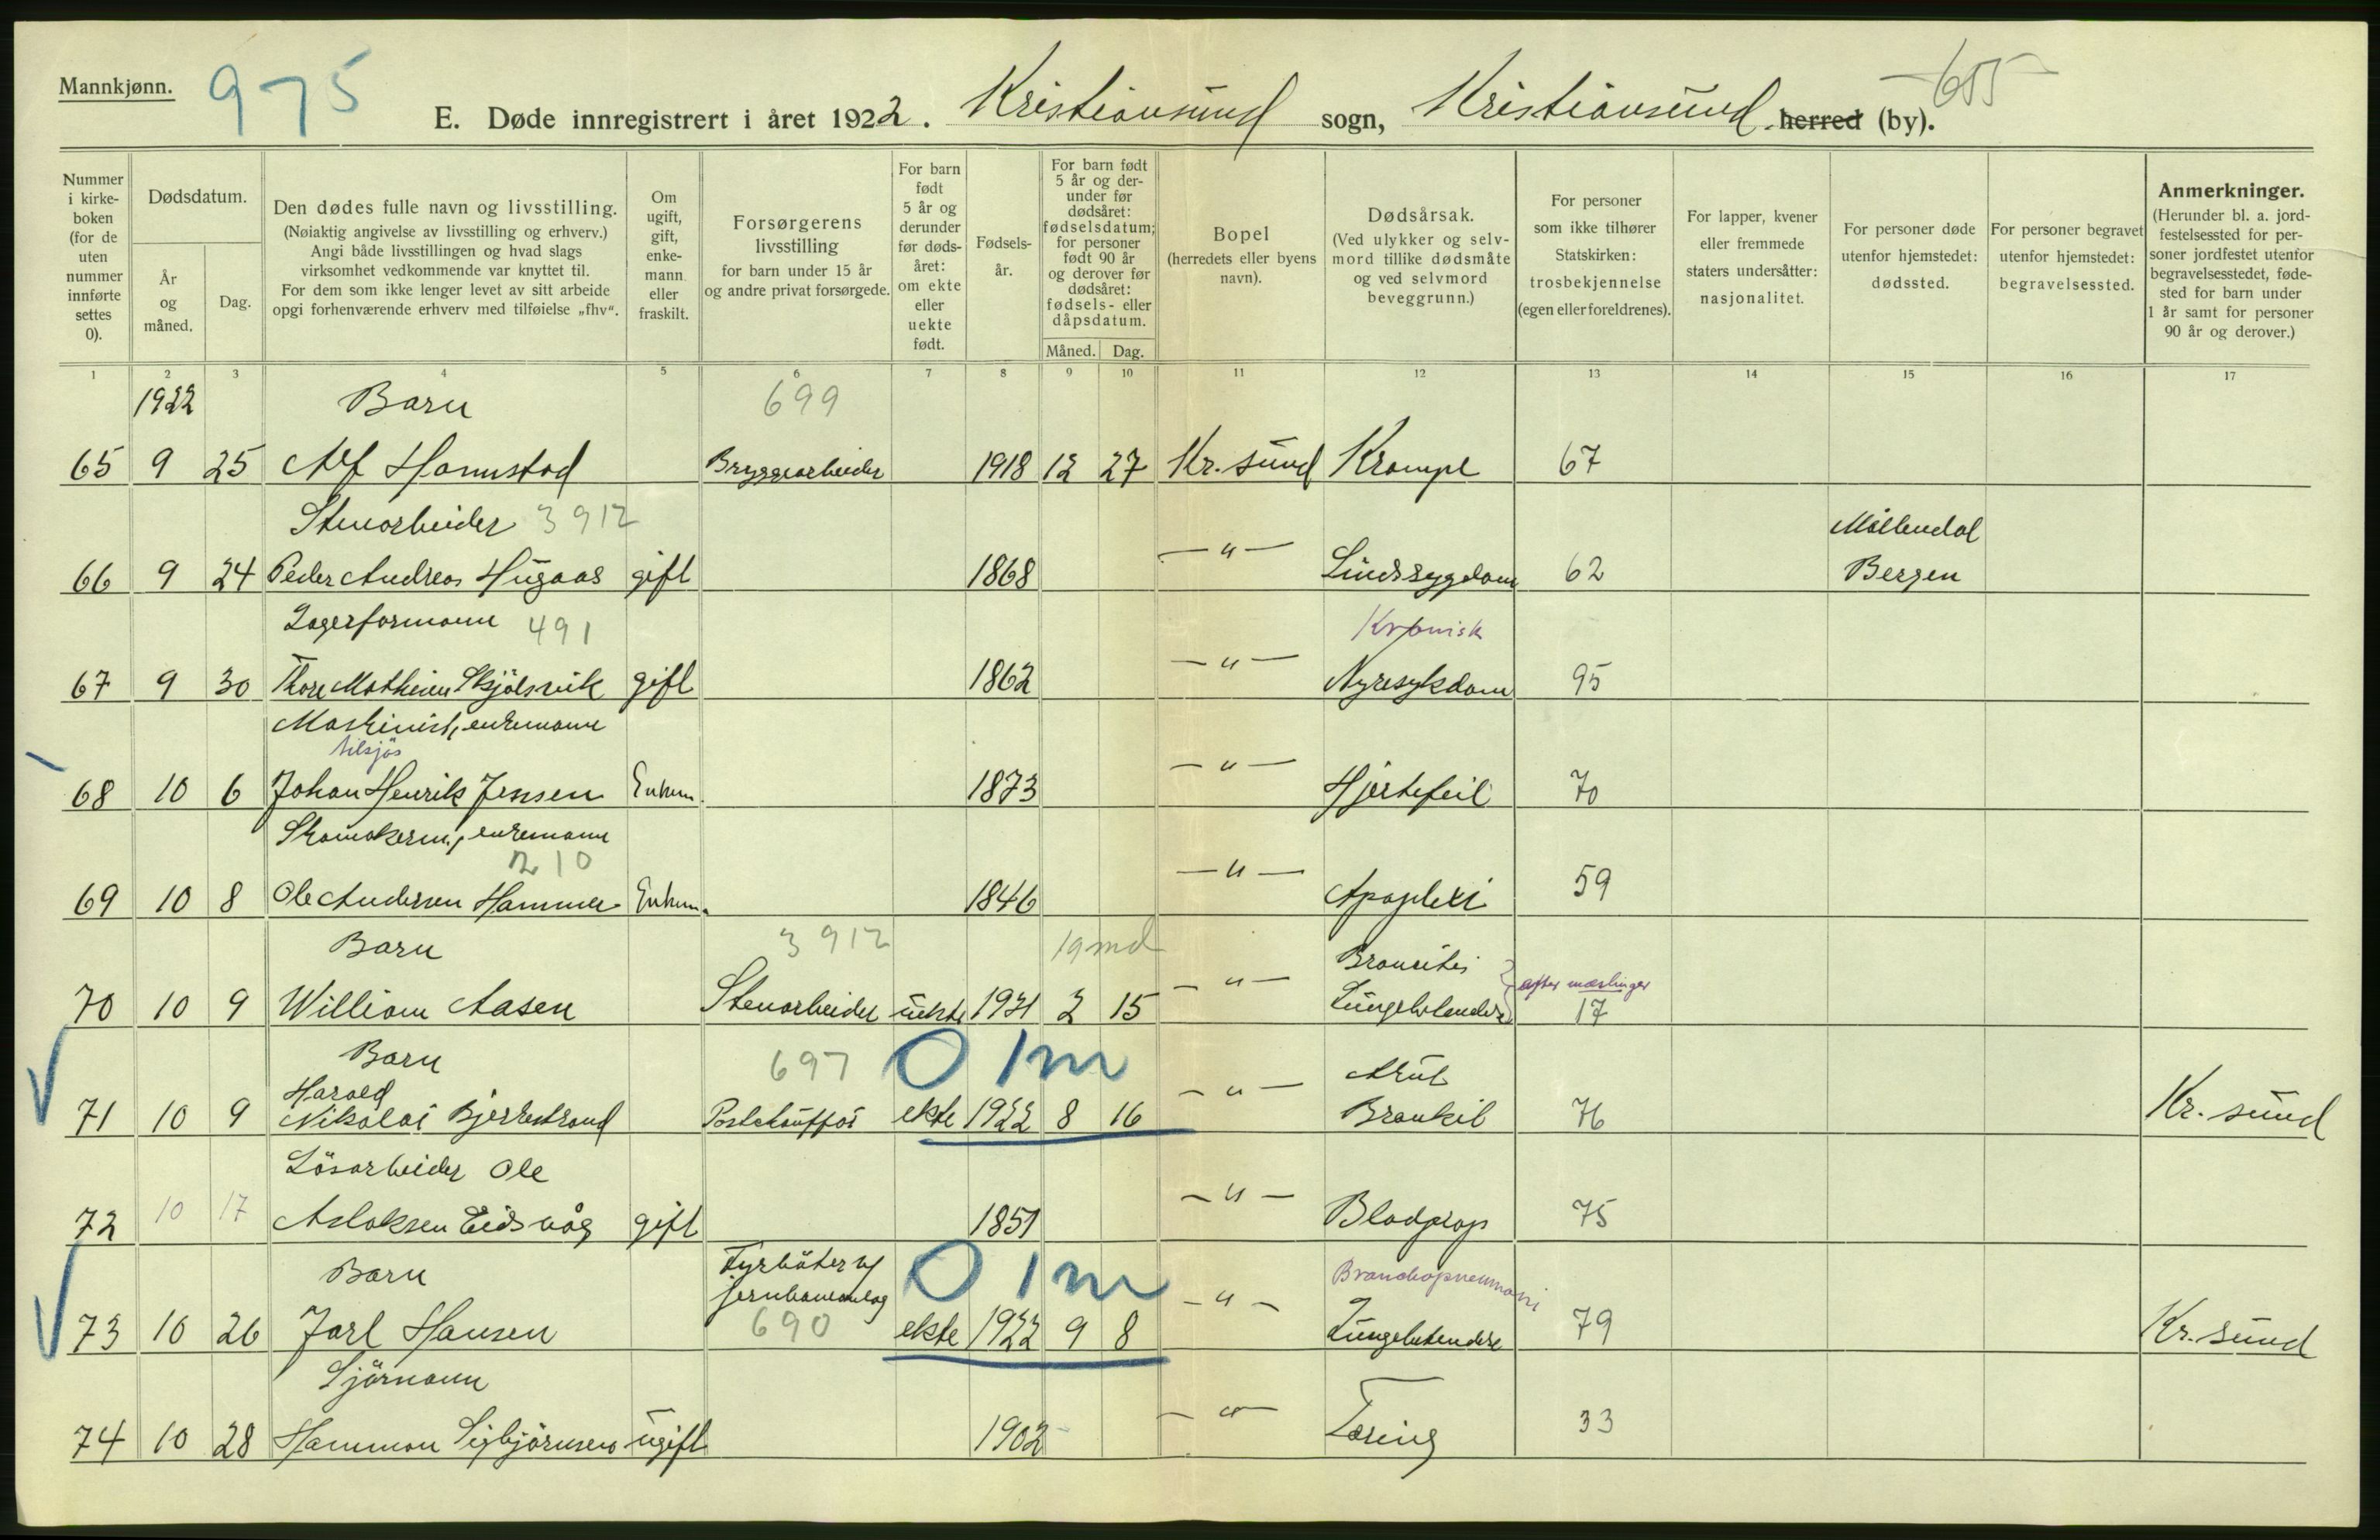 Mannkjønn.
975
655
E. Døde innregistrert i året 1922. Kristiansund sogn, Kristiansund herred (by).
Nummer i kirke-boken (for de uten nummer innførte settes 0).
Dødsdatum.
År og måned.
Dag.
Den dødes fulle navn og livsstilling.
(Nøiaktig angivelse av livsstilling og erhverv.)
Angi både livsstillingen og hvad slags
virksomhet vedkommende var knyttet til.
For dem som ikke lenger levet av sitt arbeide
opgi forhenværende erhverv med tilføielse „fhv“.
Om ugift, gift, enke-mann eller fraskilt.
Forsørgerens livsstilling
for barn under 15 år
og andre privat forsørgede.
For barn født 5 år og derunder før døds-året: om ekte eller uekte født.
Fødsels-år.
For barn født 5 år og der-under før dødsåret: fødselsdatum; for personer født 90 år og derover før dødsåret: fødsels- eller dåpsdatum.
Måned. Dag.
Bopel
(herredets eller byens navn).
Dødsårsak.
(Ved ulykker og selv-mord tillike dødsmåte og ved selvmord beveggrunn.)
For personer som ikke tilhører Statskirken: trosbekjennelse (egen eller foreldrenes).
For lapper, kvener eller fremmede staters undersåtter: nasjonalitet.
For personer døde utenfor hjemstedet: dødssted.
For personer begravet utenfor hjemstedet: begravelsessted.
Anmerkninger.
(Herunder bl. a. jord-festelsessted for per-soner jordfestet utenfor begravelsesstedet, føde-sted for barn under 1 år samt for personer 90 år og derover.)
1 2 3 4 5 6 7 8 9 10 11 12 13 14 15 16 17
1922 Barn 699
65 9 25 Alf Hannstad Bryggearbeider 1918 12 27 Kr. sund Krampe 67
Stenarbeider 3912 Møllendal
66 9 24 Peder Andreas Hugaas gift 1868 —"— Sindssygdom 62 Bergen
Lagerformann 491 Kronisk
67 9 30 Thore Matheius Skjølsvik gift 1862 —"— Nyresykdom 95
Maskinist, enkemann
tilsjøs
68 10 6 Johan Henrik Jensen Enkem. 1873 —"— Hjertefeil 70
Skomakerm., enkemann
210
69 10 8 Ole Andersen Hammer Enkem. 1846 —"— Apoplexi 59
Barn 3912 19 md Bronkitis
70 10 9 William Aasen Stenarbeider uekte 1921 2 15 —"— Lungebetendelse after mæslinger 17
Barn 697 0 1m Akut
Harald
71 10 9 Nikolai Bjerkestrand Postchauffør ekte 1922 8 16 —"— Bronkit 76 Kr. sund
Løsarbeider Ole
72 10 17 Aslaksen Eidsvåg gift 1851 —"— Blodprop 75
Barn Fyrbøter v/ jernbaneanlæg 0 1m Bronchopneumoni
73 10 26 Jarl Hansen 690 ekte 1922 9 8 —"— Lungebetendelse 79 Kr. sund
Sjømann
74 10 28 Hammon Sigbjørnsen ugift 1902 —"— Tæring 33